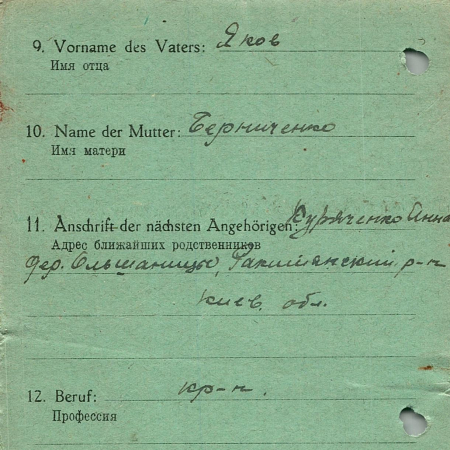 9. Vorname des Vaters: Яков
Имя отца
10. Name der Mutter: Берниченко
Имя матери
11. Anschrift der nächsten Angehörigen: Куряченко Анна
Адрес ближайших родственников
дер. Ольшаницы, Ракитянский р-н
Киев. обл.
12. Beruf: кр-н.
Профессия